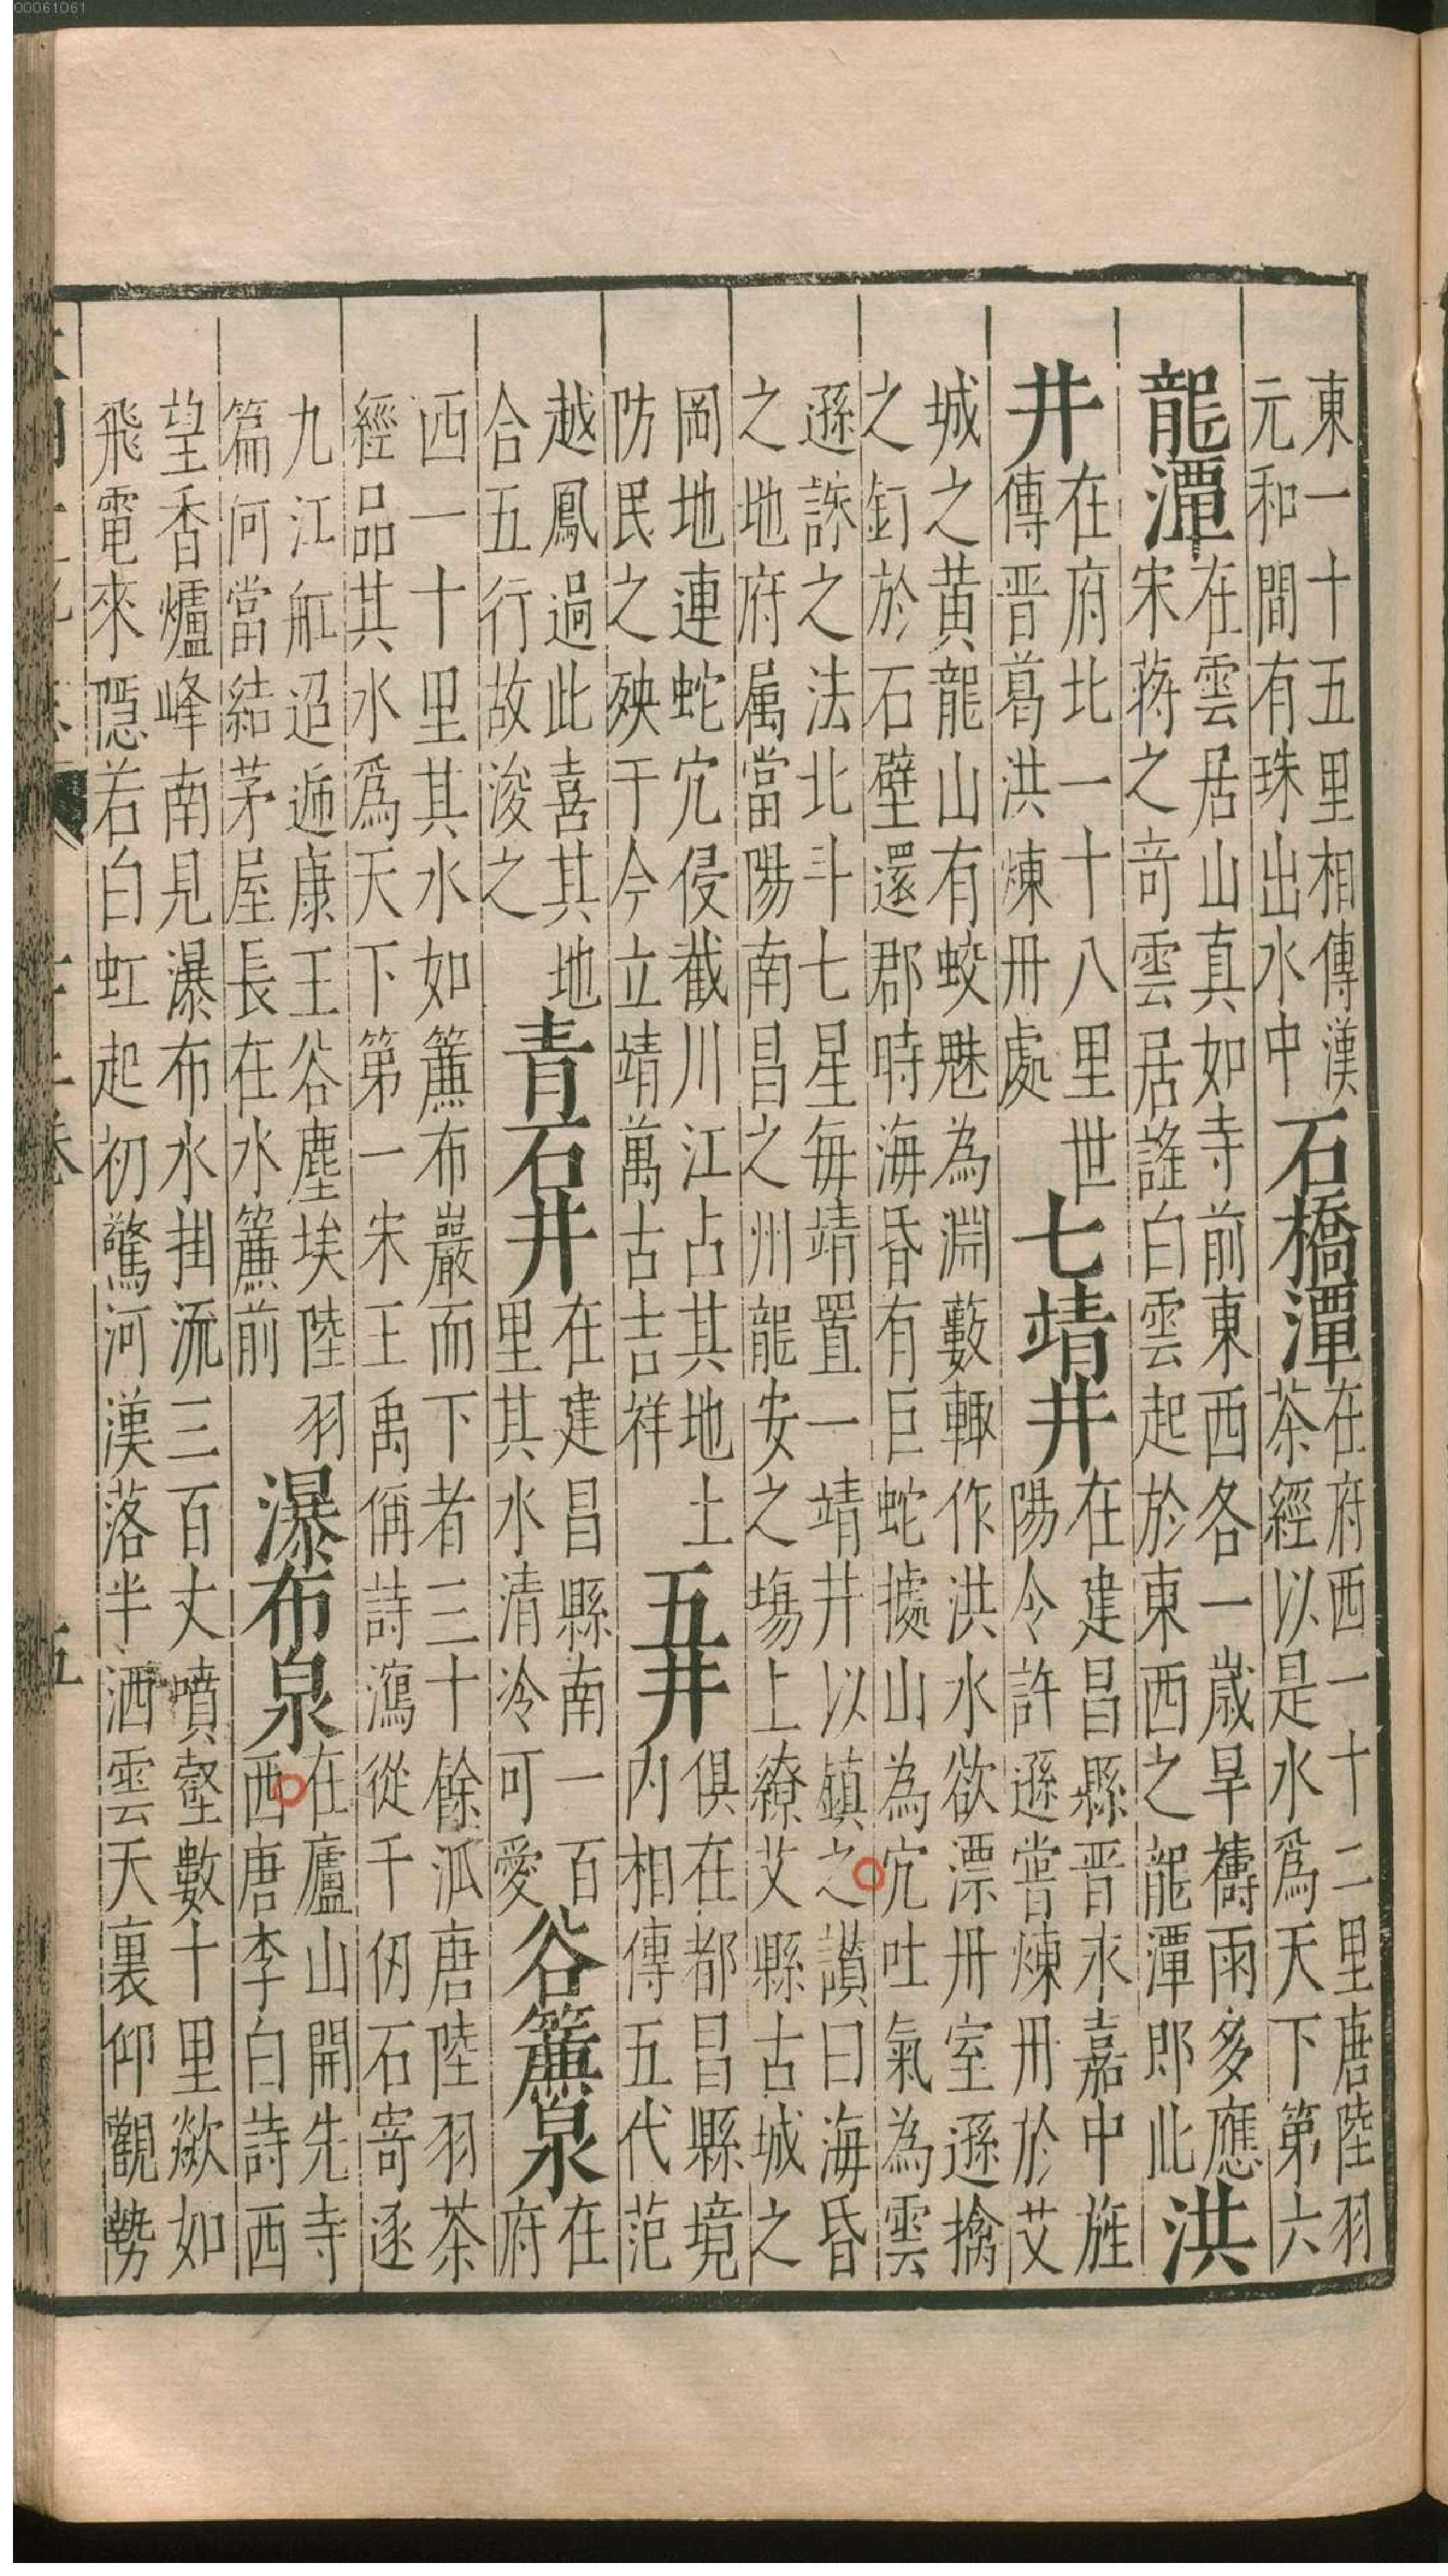 00061061
東一十五里相傳漢
元和間有珠出水中
石橋潭
在府西一十二里唐陸羽
茶經以是水爲天下第六
龍潭
在雲居山真如寺前東西各一歲旱禱雨多應
宋蒋之竒雲居謠白雲起於東西之龍潭郎此
洪
井
在府北一十八里世
傳晋葛洪煉丹處
七靖井
在建昌縣晋永嘉中旌
陽令許遜嘗煉丹於艾
城之黄龍山有蛟魅為淵藪輙作洪水欲漂丹室遜擒
之釘於石壁還郡時海昏有巨蛇據山為宂吐氣為雲
遜誅之法北斗七星每靖置一靖井以鎮之讃曰海昏
之地府属當陽南昌之州龍安之塲上繚艾縣古城之
岡地連蛇宂侵截川江占其地土
防民之殃于今立靖萬古吉祥
五井
俱在都昌縣境
内相傳五代范
越鳳過此喜其地
合五行故浚之
青石井
在建昌縣南一百
里其水清冷可愛
谷簾泉
在
府
西一十里其水如簾布巖而下者三十餘派唐陸羽茶
經品其水爲天下第一宋王禹偁詩瀉從千仞石寄逐
九江舡迢逓康王谷塵埃陸羽
篇何當結茅屋長在水簾前
瀑布泉
在廬山開先寺
西唐李白詩西
望香爐峰南見瀑布水掛流三百丈噴壑數十里歘如
飛電來隠若白虹起初驚河漢落半洒雲天裏仰觀勢